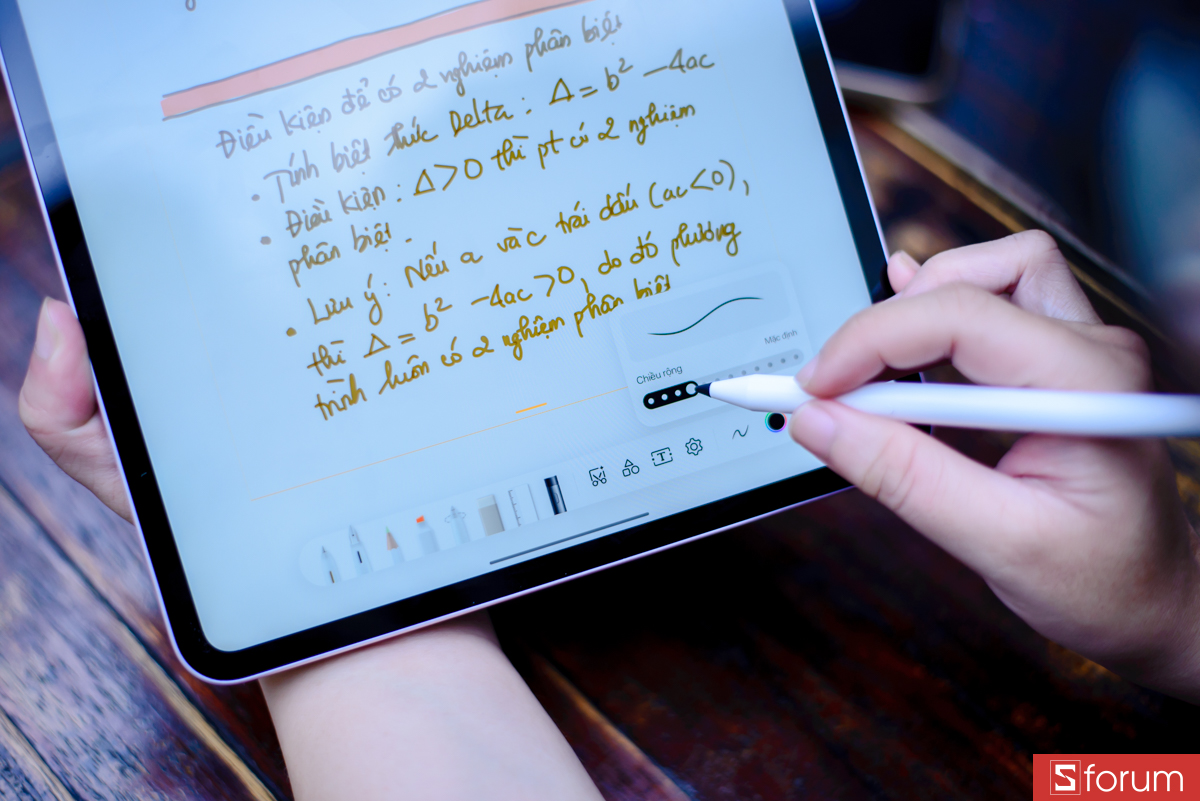 Điều kiện để có 2 nghiệm phân biệt
• Tính biệt thức Delta : Δ = b² - 4ac
• Điều kiện : Δ > 0 thì pt có 2 nghiệm
phân biệt.
• Lưu ý: Nếu a và c trái dấu (ac < 0),
thì Δ = b² - 4ac > 0, do đó phương
trình luôn có 2 nghiệm phân biệt
Mặc định
Chiều rộng
T
Sforum